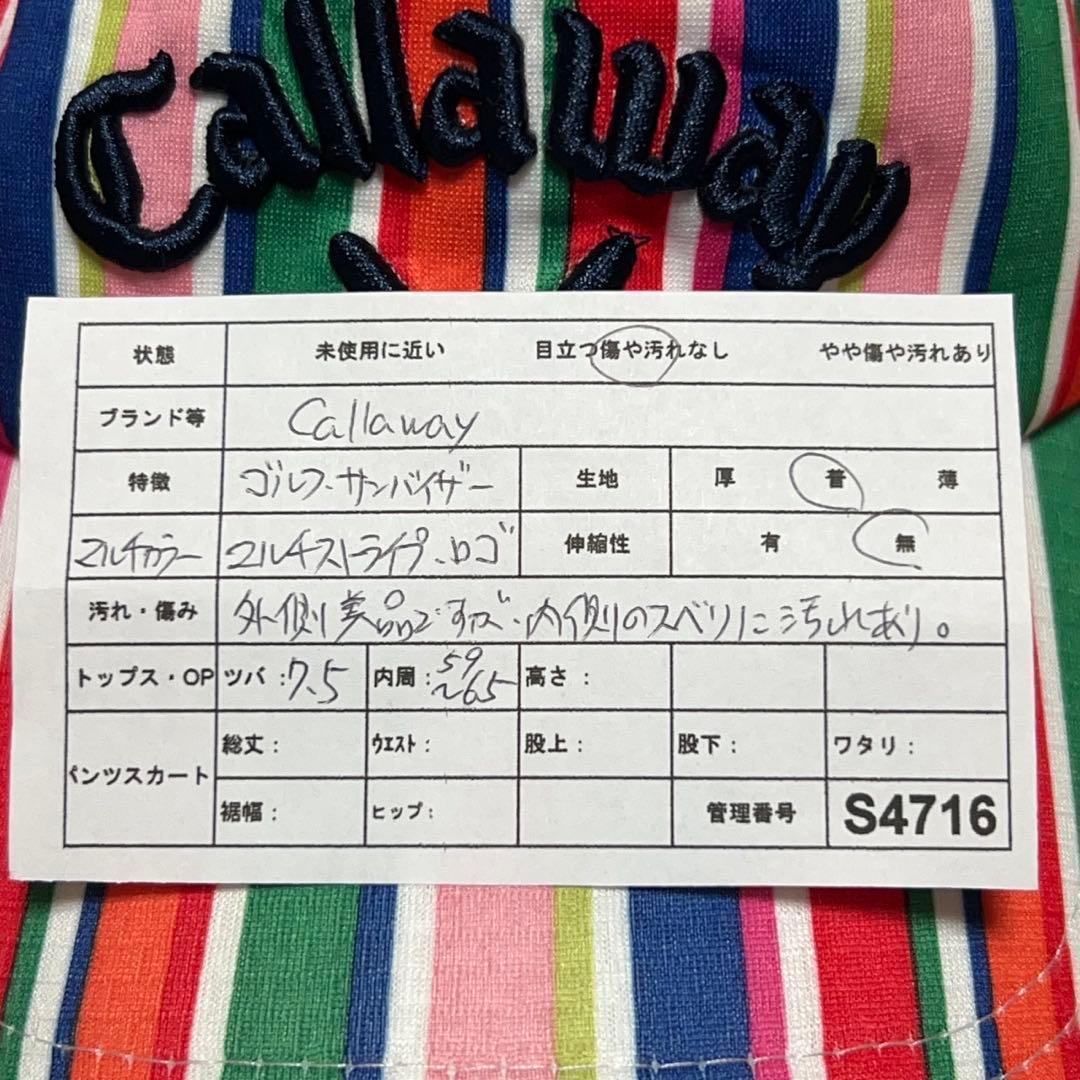 Callaway
状態 未使用に近い 目立つ傷や汚れなし やや傷や汚れあり
ブランド等 Callaway
特徴 ゴルフ・サンバイザー 生地 厚 普 薄
マルチカラー マルチストライプ、ロゴ 伸縮性 有 無
汚れ・傷み 外側美品ですが、内側のスベリに汚れあり。
トップス・OP ツバ:7.5 内周:59~65 高さ:
パンツスカート 総丈: ウエスト: 股上: 股下: ワタリ:
裾幅: ヒップ: 管理番号 S4716